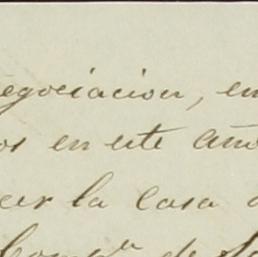 egociacion, en
os en este año
cer la casa d
Comp.ª de